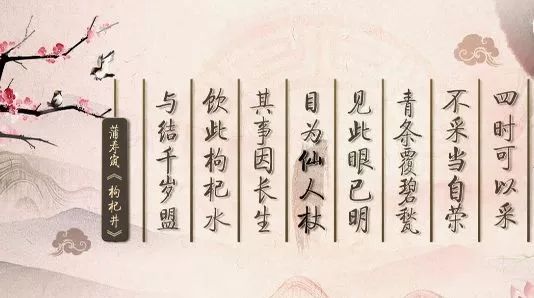 四时可以采
不采当自荣
青条覆碧甃
见此眼已明
目为仙人杖
其事因长生
饮此枸杞水
与结千岁盟
蒲寿宬《枸杞井》